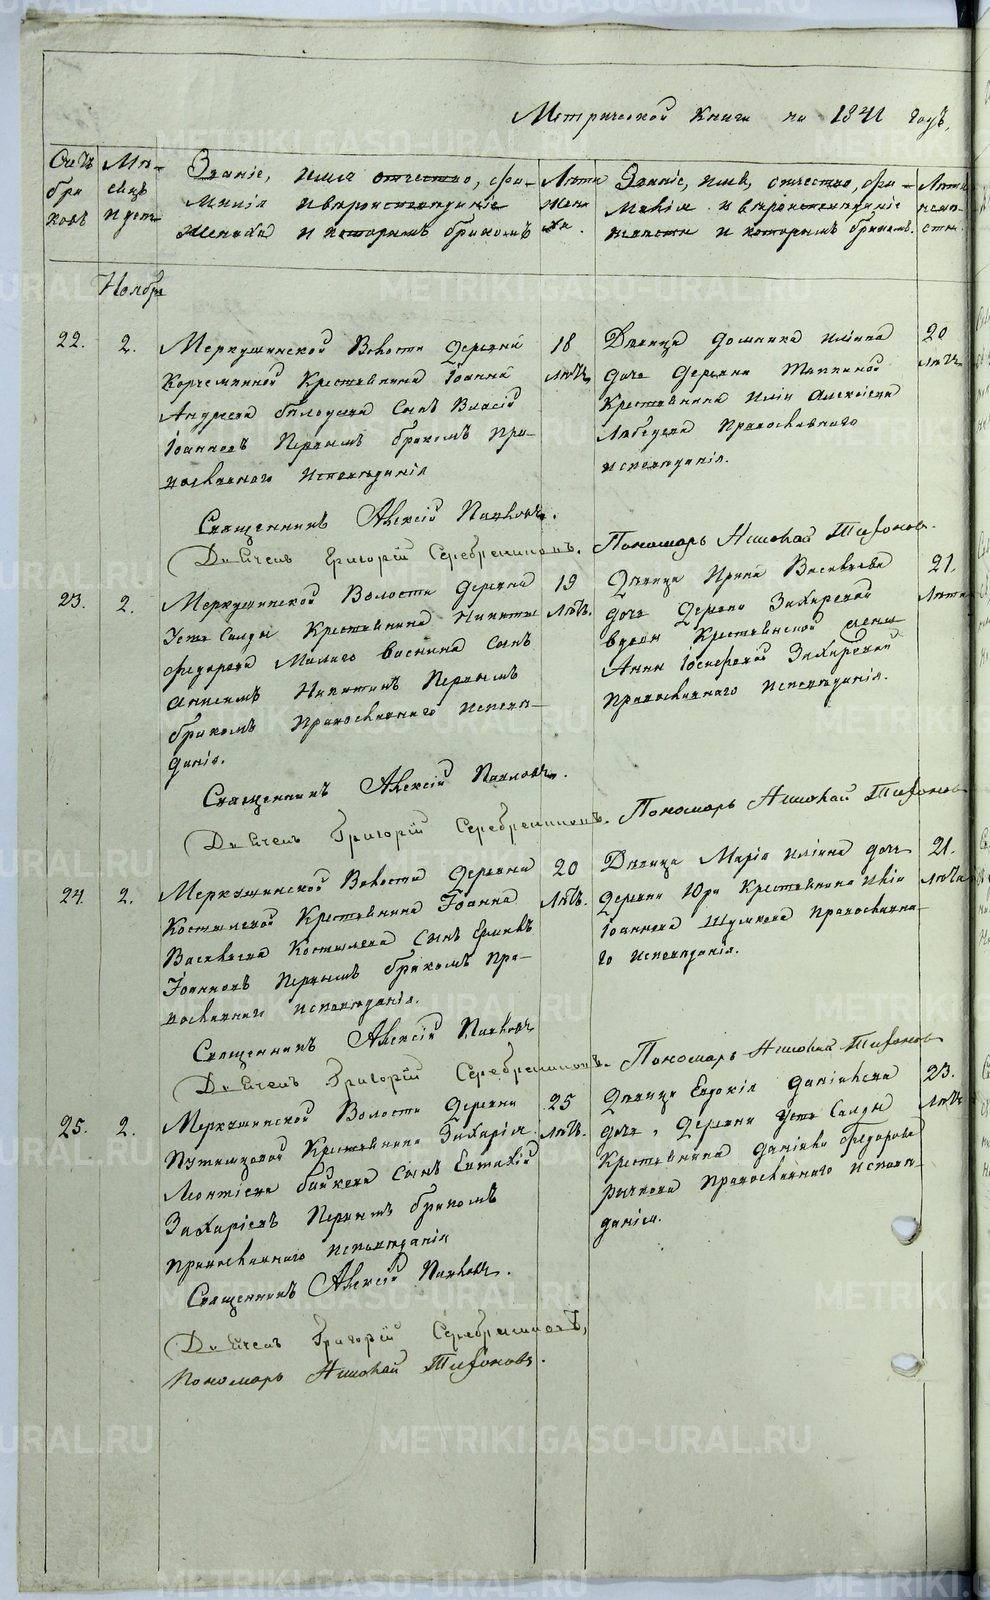 Метрической книги на 1841 годъ,
Счетъ браковъ
Мѣсяцъ и день
Званіе, имя отчество, фамилія и вѣроисповѣданіе жениха и которымъ бракомъ
Лѣта жениха.
Званіе, имя, отчество, фамилія и вѣроисповѣданіе невѣсты и которымъ бракомъ.
Лѣта невѣсты.
Ноября
22.
2.
Меркушинской Волости деревни
Крестьянина Іоанна
Андреева сынъ Власій
Іоанновъ Первымъ бракомъ Пра-
вославнаго Исповѣданія
18
лѣтъ
Дѣвица Домника Иліина
дочь деревни
Крестьянина Иліи Алексіева
Лебедева Православнаго
исповѣданія.
20
лѣтъ
Священникъ Алексій Павловъ.
Дьяченъ Григорій Серебренниковъ.
Пономарь Николай Тихоновъ.
23.
2.
Меркушинской Волости деревни
Усть Салды Крестьянина Никиты
Федорова Малаго сынъ
Никитинъ Первымъ
бракомъ Православнаго Исповѣ-
данія.
19
лѣтъ.
Дѣвица Ирина Васильева
дочь деревни Захаровой
вдовы Крестьянской жены
Анны Іосифовой Захаровой
Православнаго Исповѣданія.
21.
лѣта
Священникъ Алексій Павловъ.
Дьяченъ Григорій Серебренниковъ.
Пономарь Николай Тихоновъ
24.
2.
Меркушинской Волости деревни
Костылевой Крестьянина Іоанна
Васильева Костылева сынъ
Іоанновъ Первымъ бракомъ Пра-
вославнаго исповѣданія.
20
лѣтъ.
Дѣвица Марія Иліина дочь
деревни Крестьянина Иліи
Іоаннова Шумкова Православна-
го исповѣданія.
21.
лѣта
Священникъ Алексій Павловъ
Дьяченъ Григорій Серебренниковъ.
Пономарь Николай Тихоновъ
25.
2.
Меркушинской Волости деревни
Путимцовой Крестьянина Захаріи
Леонтіева сынъ Евтихій
Захаріевъ Первымъ бракомъ
Православнаго исповѣданія
25
лѣтъ.
Дѣвица Евдокія Даніилова
дочь, деревни Усть Салды
Крестьянина Даніила Федорова
Рычкова Православнаго исповѣ-
данія.
23.
лѣтъ
Священникъ Алексій Павловъ.
Дьяченъ Григорій Серебренниковъ,
Пономарь Николай Тихоновъ.
METRIKI.GASO-URAL.RU